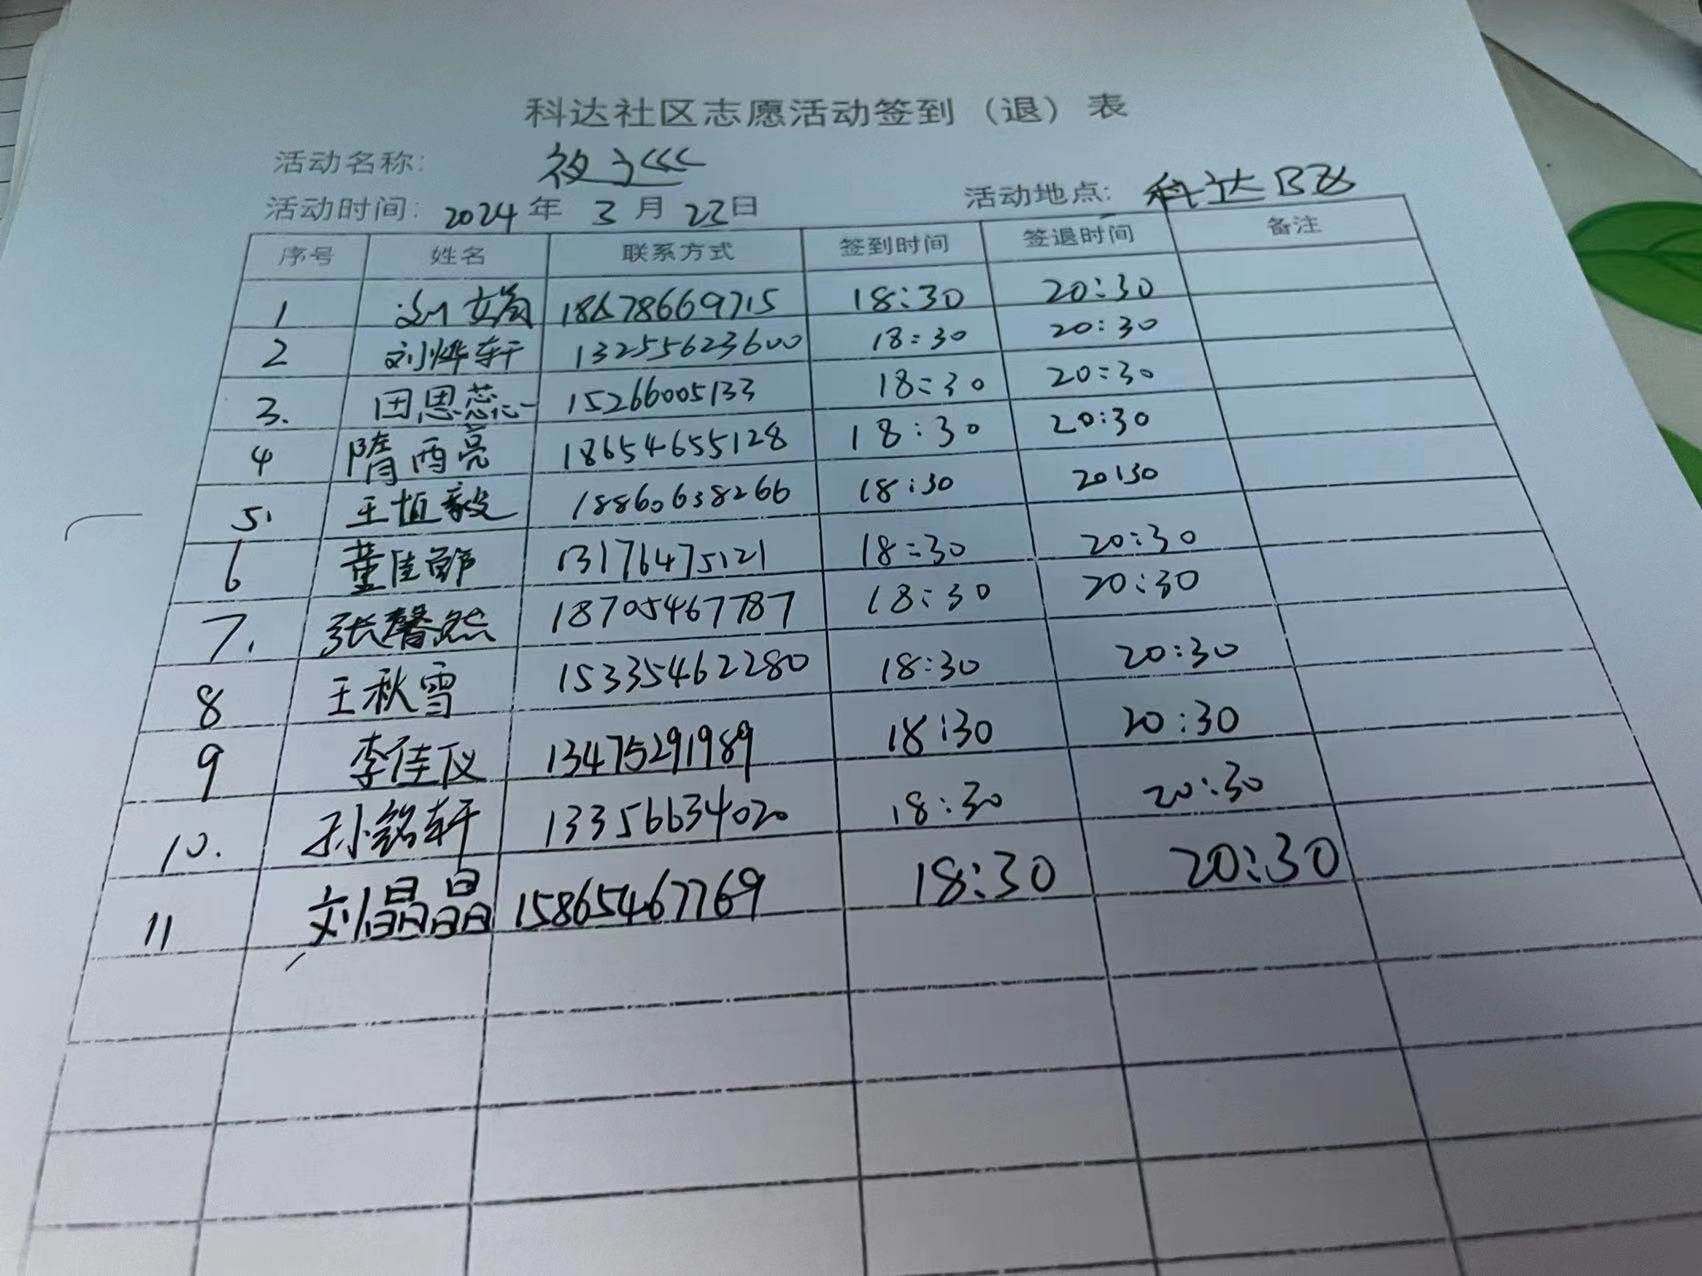 科达社区志愿活动签到（退）表
活动名称: 夜巡
活动时间: 2024年 3月 22日 活动地点: 科达B区
序号 姓名 联系方式 签到时间 签退时间 备注
1 18678669715 18:30 20:30
2 刘烨轩 13255623600 18:30 20:30
3. 田思蕊 15266005133 18:30 20:30
4 隋西亮 18654655128 18:30 20:30
5. 王植毅 18860638266 18:30 20:30
6 董佳 13176475121 18:30 20:30
7. 张馨然 18705467787 18:30 20:30
8 王秋雪 15335462280 18:30 20:30
9 李佳仪 13475291989 18:30 20:30
10. 孙铭轩 13356634020 18:30 20:30
11 刘晶晶 15865467769 18:30 20:30